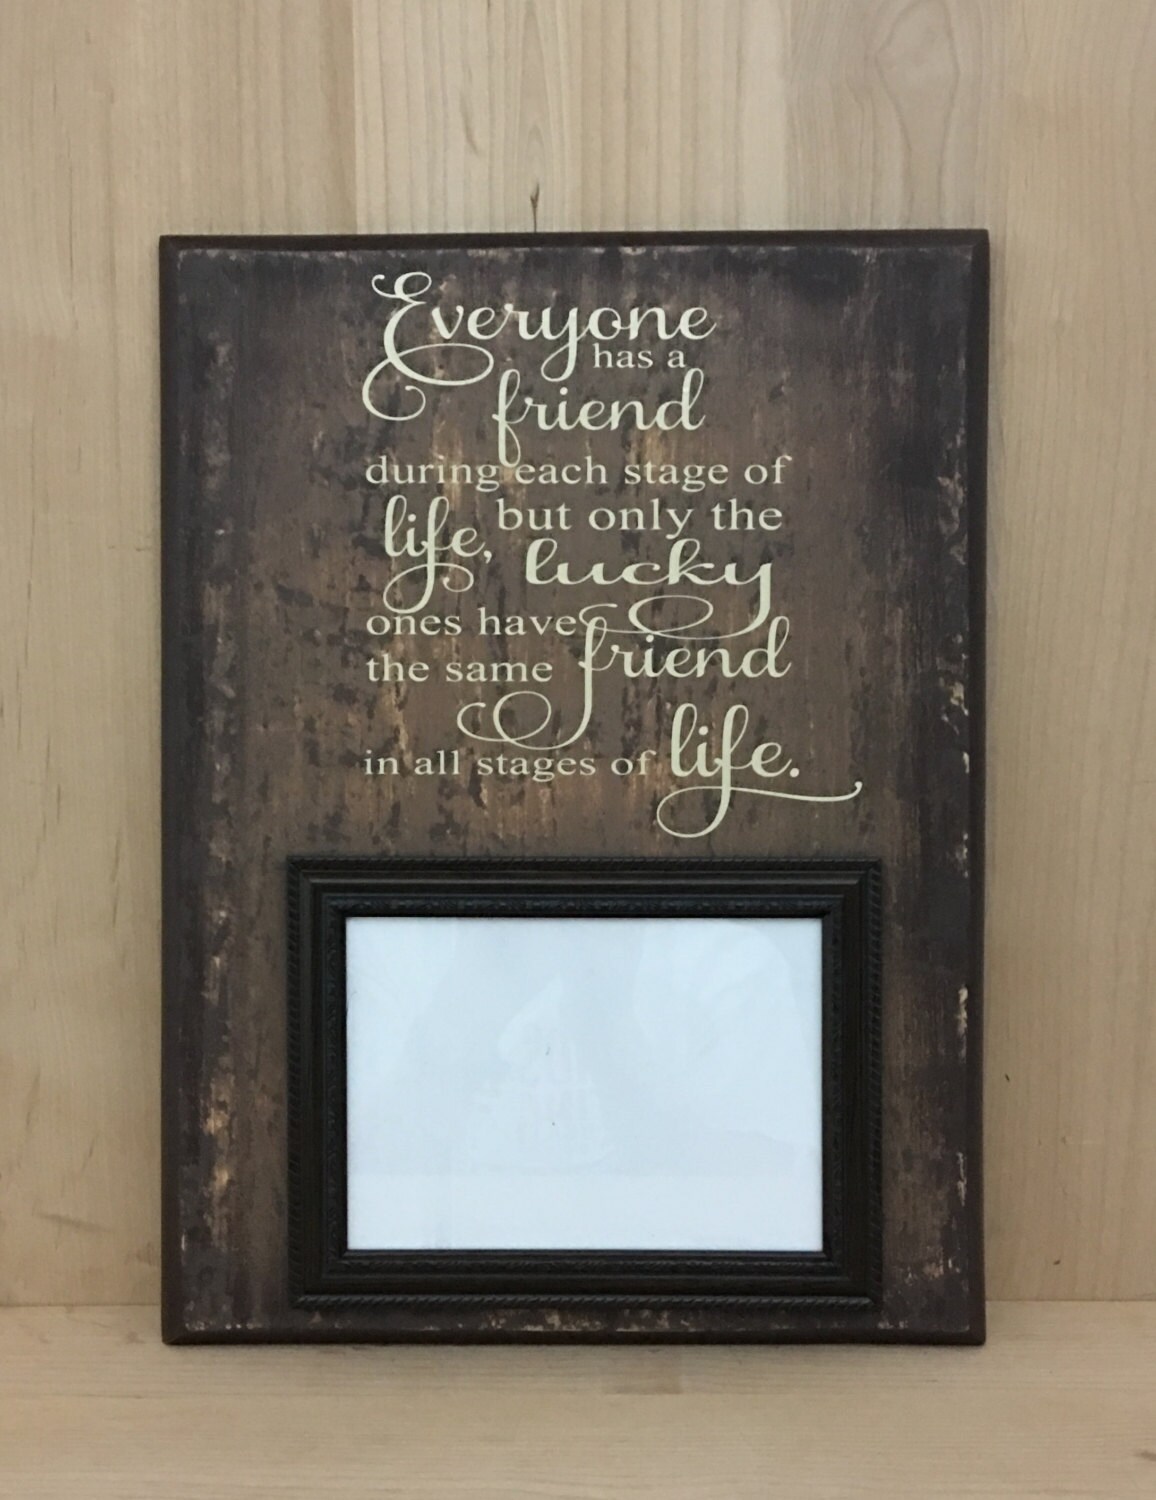 Everyone
has a
friend
during each stage of
life, but only the
lucky
ones have
the same friend
in all stages of life.